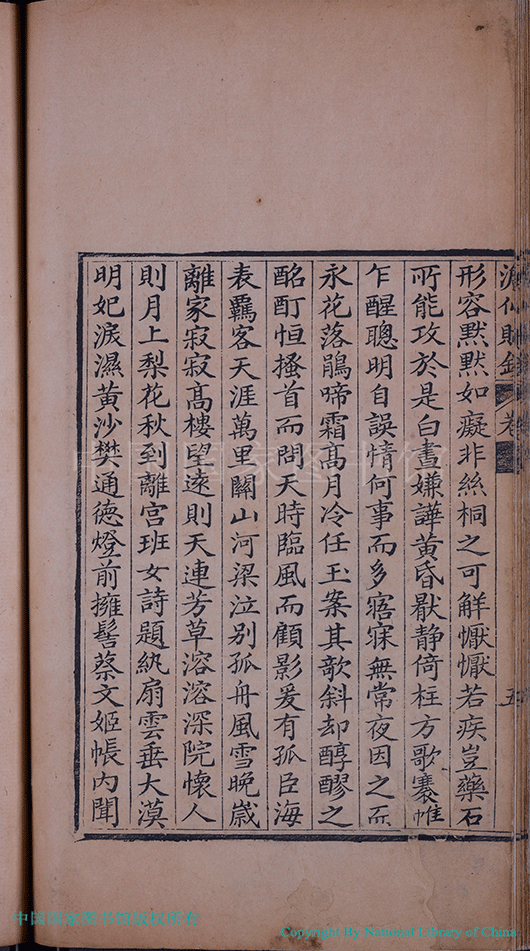 形容黙黙如癡非絲桐之可解懨懨若疾豈藥石
所能攻於是白晝嫌譁黄昏厭静倚柱方歌褰帷
乍醒聰明自誤情何事而多寤寐無常夜因之而
永花落鵑啼霜髙月冷任玉案其欹斜却醇醪之
酩酊恒搔首而問天時臨風而顧影爰有孤臣海
表羈客天涯萬里關山河梁泣別孤舟風雪晚歲
離家寂寂髙樓望逺則天連芳草溶溶深院懐人
則月上梨花秋到離宫班女詩題紈扇雲垂大漠
明妃淚濕黄沙樊通德燈前擁髻蔡文姬帳内聞
卷
五
中国国家图书馆
中国国家图书馆版权所有
Copyright By National Library of China